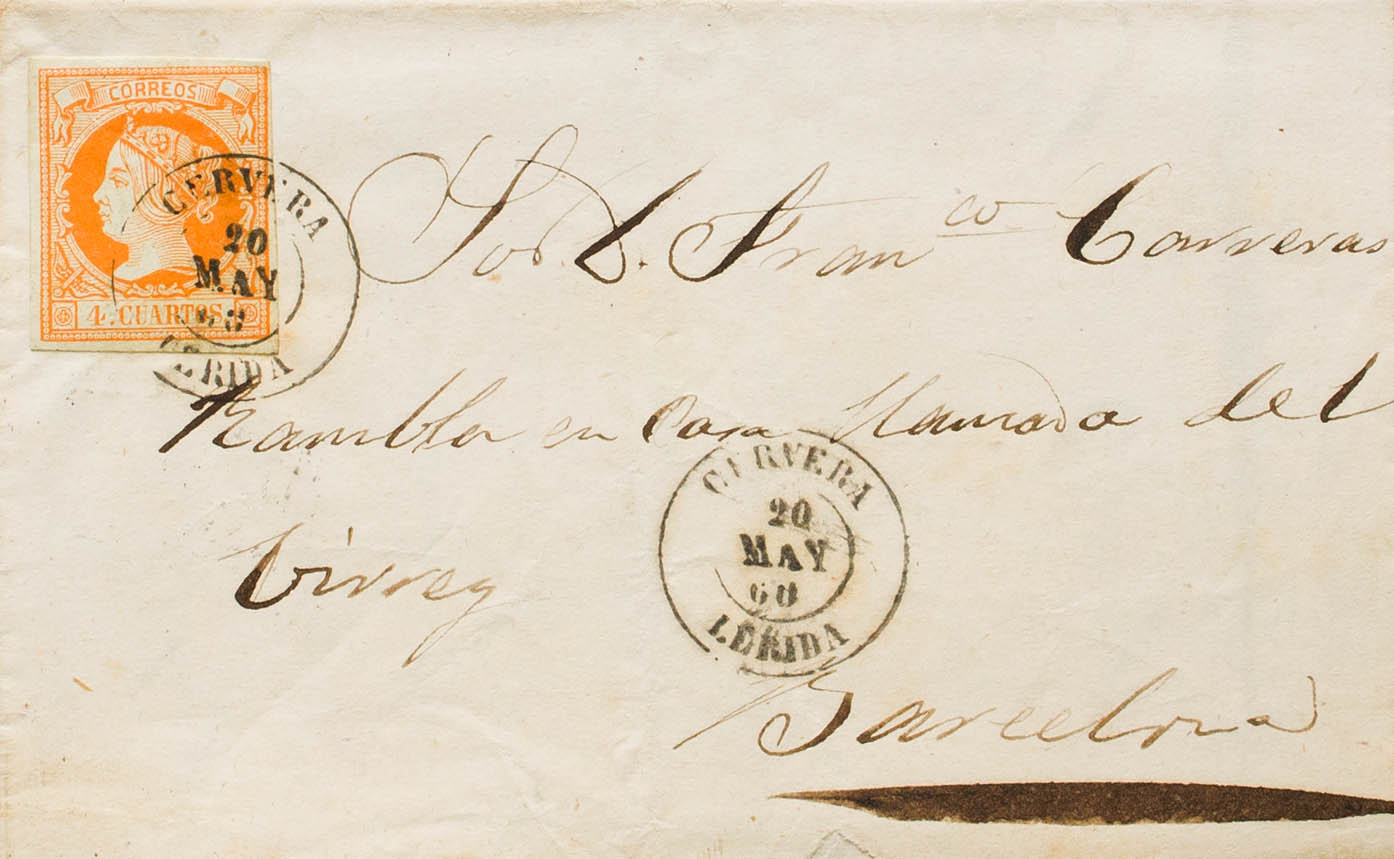 CORREOS
CERVERA
20
MAY
4. CUARTOS.
LERIDA
Sor. D. Franco. Carreras
Rambla en Casa llamada del
Virrey
CERVERA
20
MAY
60
LERIDA
Barcelona